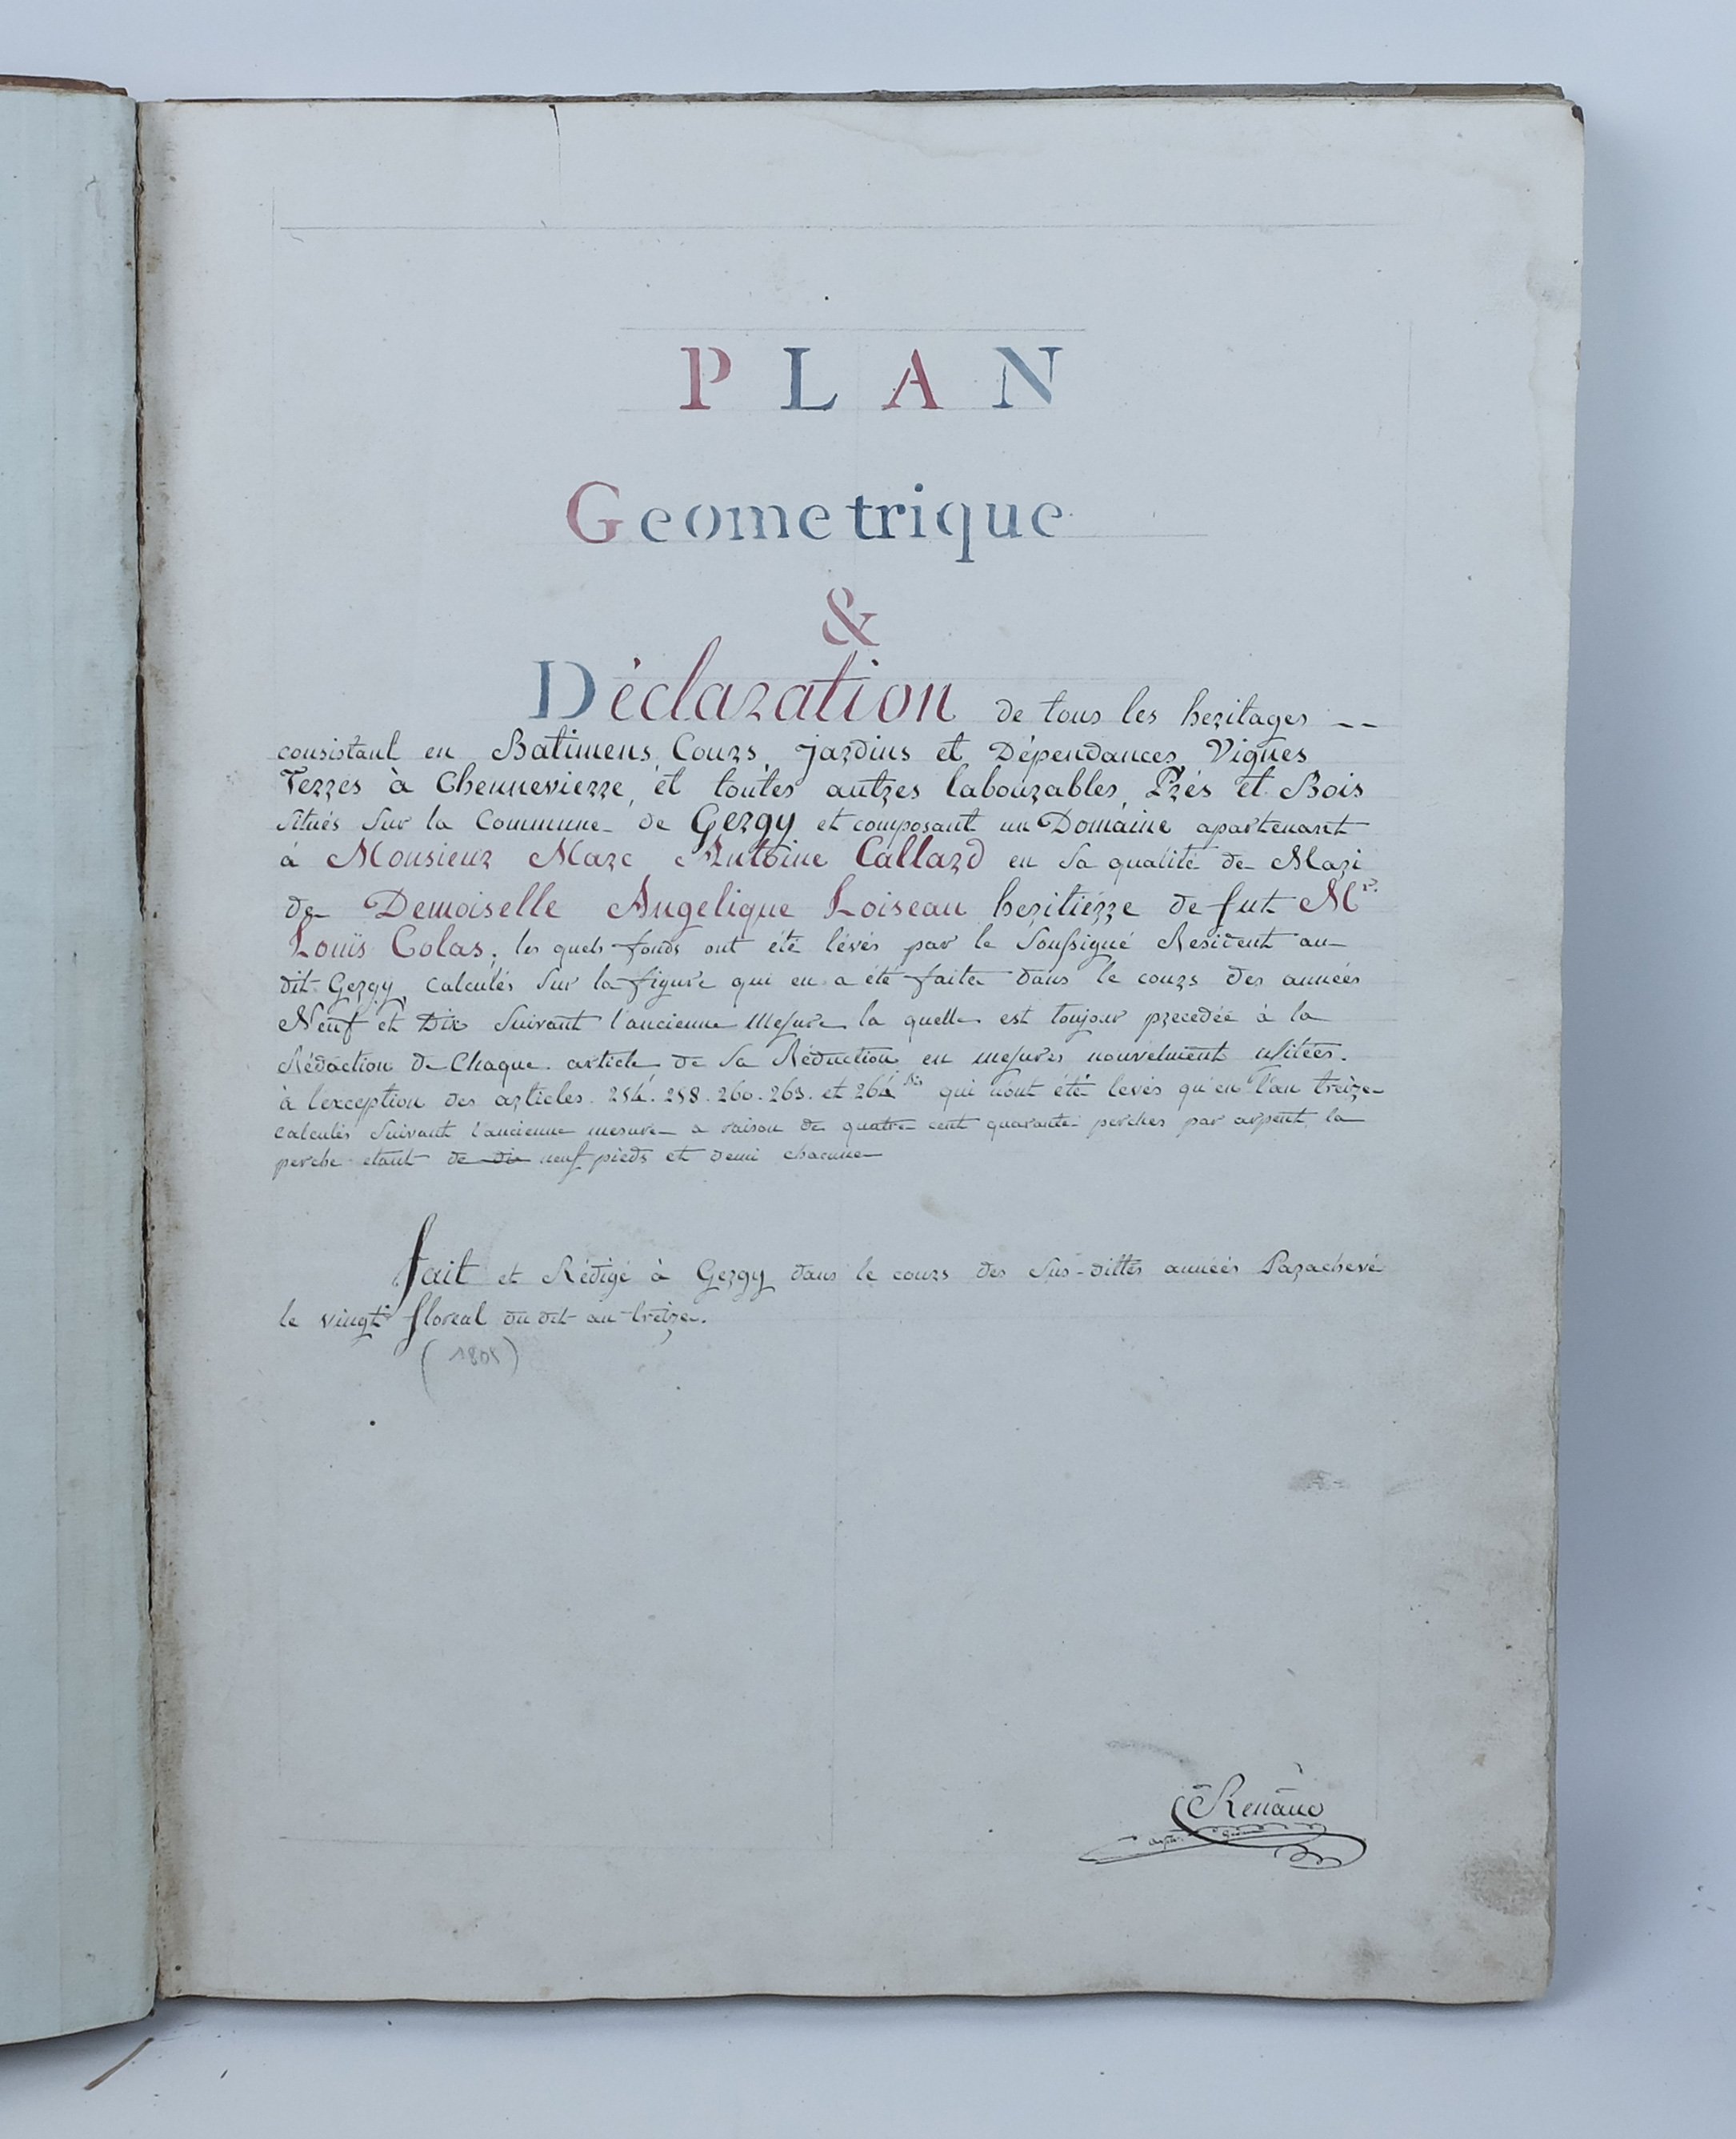 PLAN
Geometrique
&
Déclaration de tous les heritages --
consistant en Batimens, Cours, jardins et Dépendances, Vignes
Terres à Chennevierre, et toutes autres labourables, Prés et Bois
situés sur la Commune de Gergy et composant un Domaine apartenant
à Monsieur Marc Antoine Callard en sa qualité de Mari
de Demoiselle Angelique Loiseau heritiérre de fut Mr.
Louïs Colas; les quels fonds ont été lévés par le soussigné Resident au
dit Gergy, calculés sur la figure qui en a été faite dans le cours des années
Neuf et Dix suivant l'ancienne Mesure la quelle est toujour precedée à la
Rédaction de Chaque article de sa Réduction en mesures nouvelment usitées.
à lexception des articles. 254. 258. 260. 263. et 264 bis qui nont été levés qu'en l'an treize
calculés suivant l'ancienne mesure a raison de quatre cent quarante perches par arpent, la
perche etant de dix neuf pieds et demi chacune
fait et Rédigé à Gergy dans le cours des sus-dittes années Parachevé
le vingt floreal du dit an treize.
(1805)
Renaud